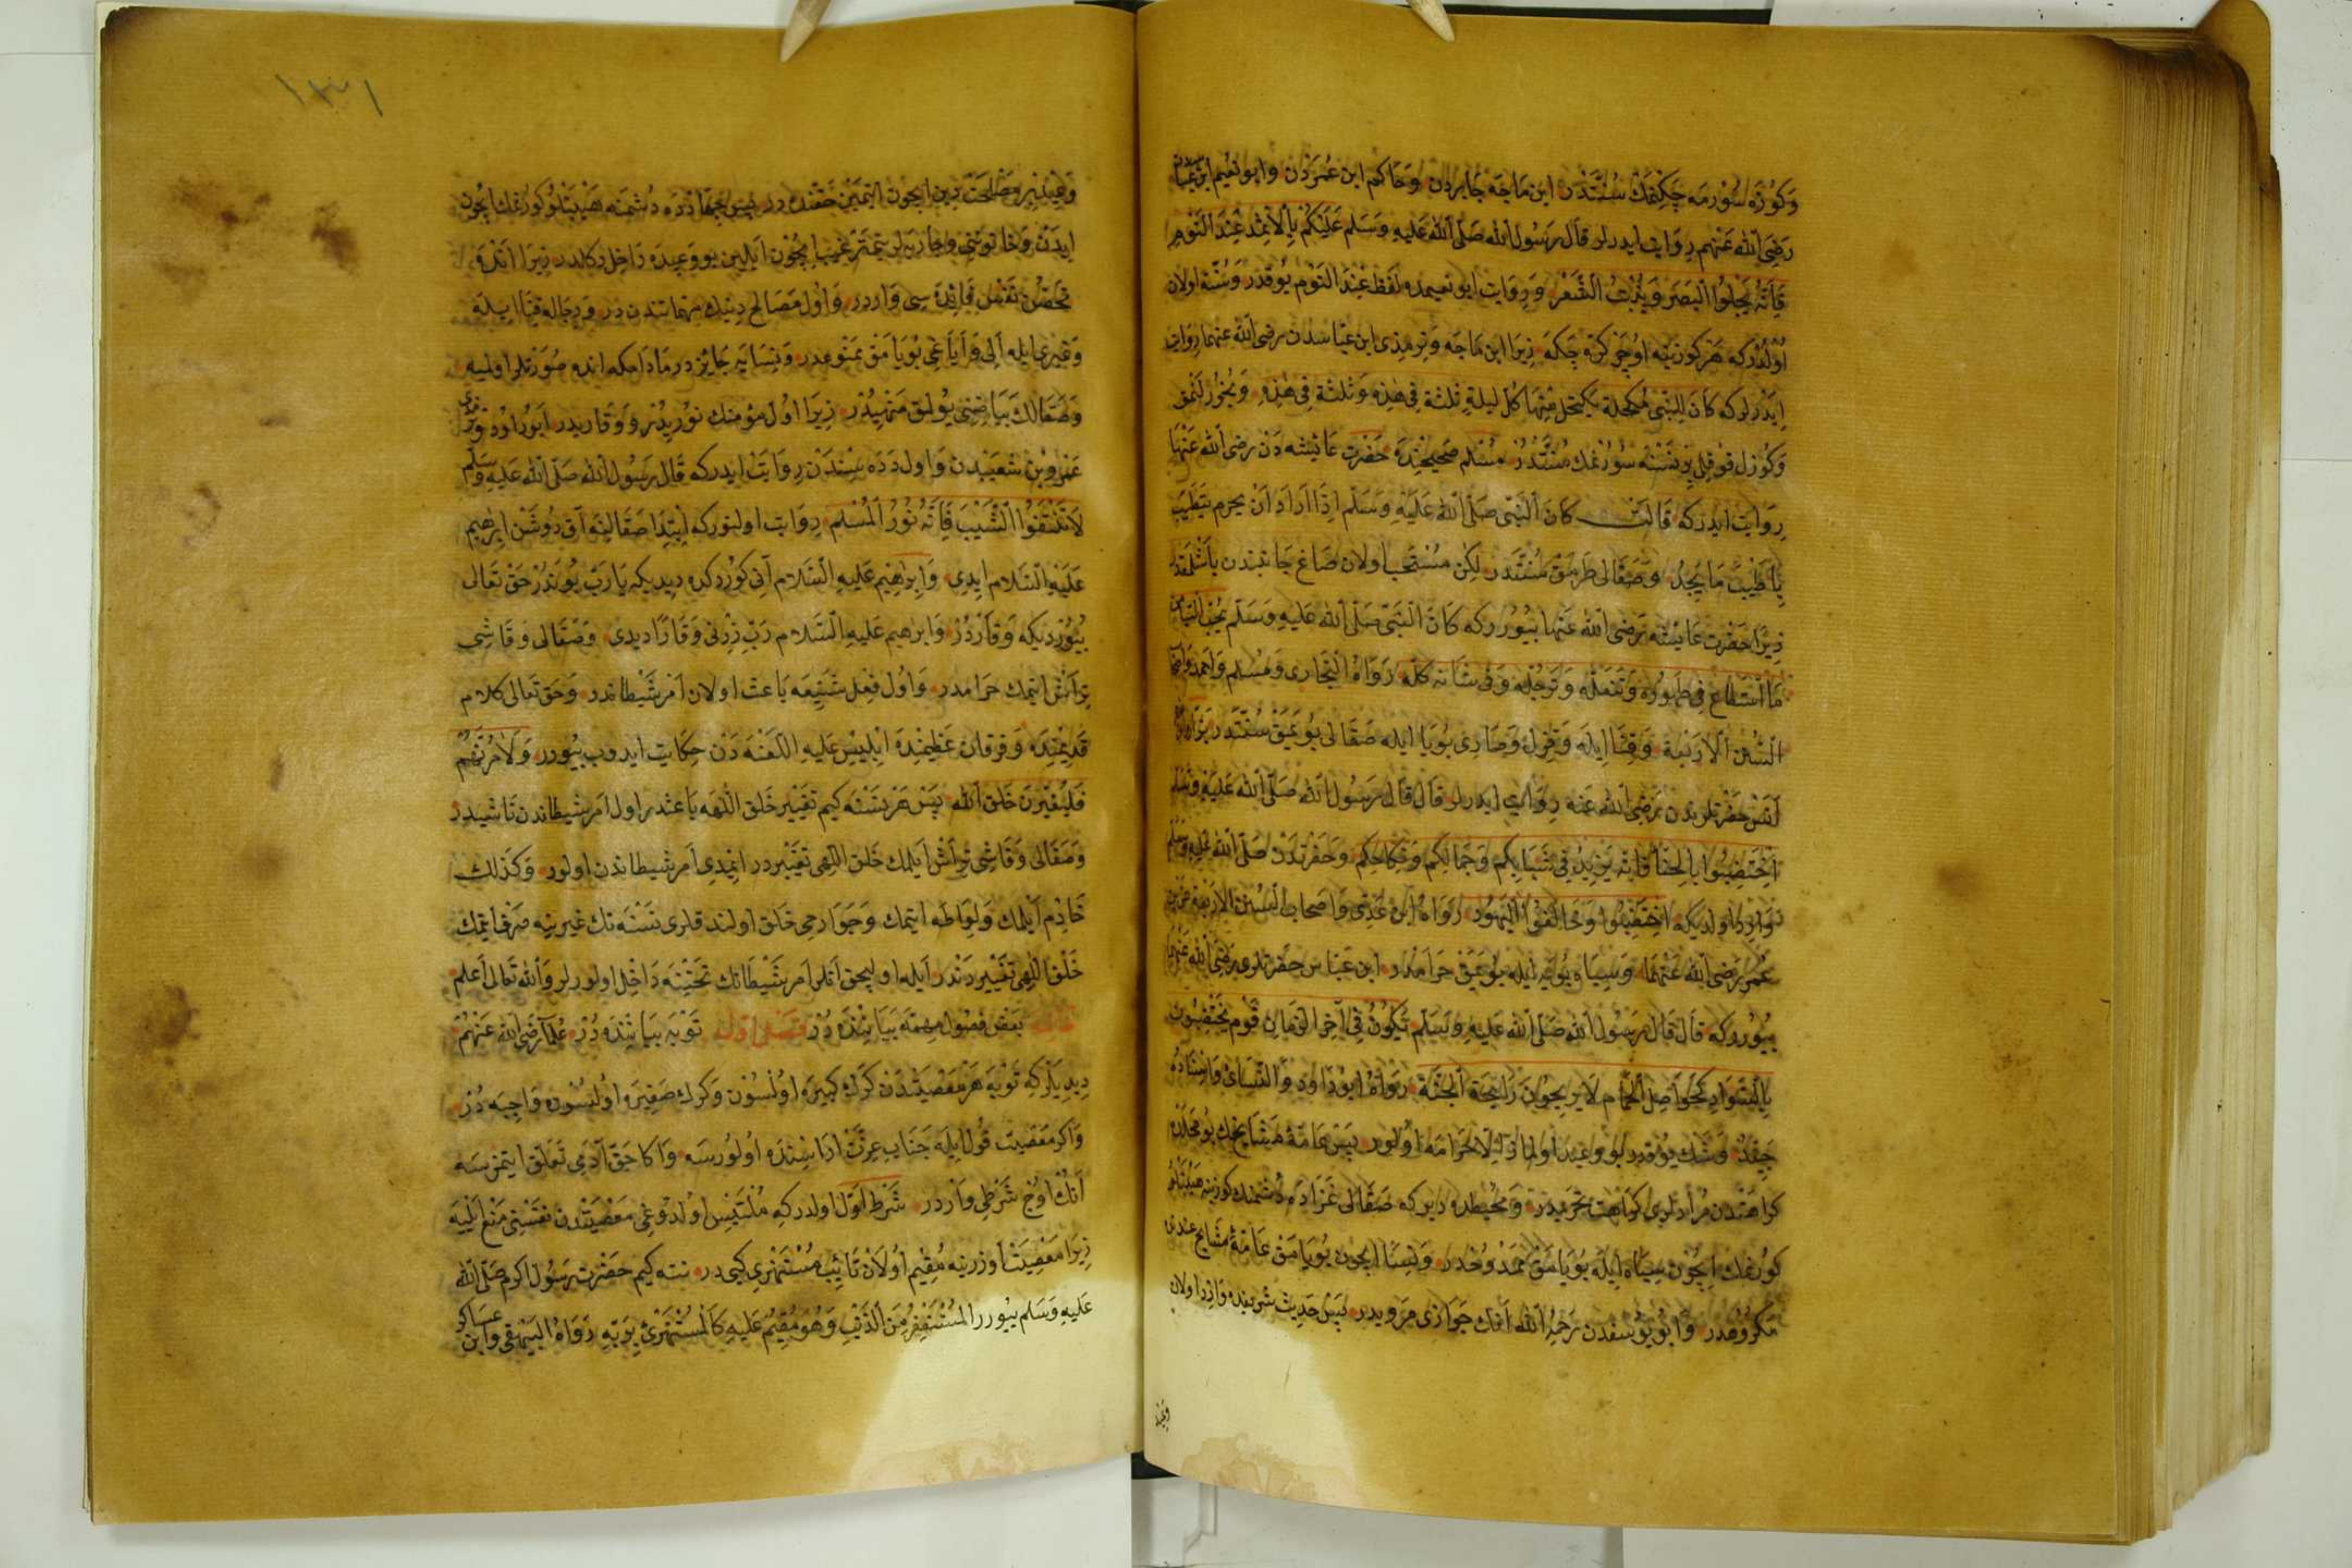 وَكُوزَه سُورْمَه چَكِكْمَكْ سُنَّتْدُرْ ابن مَاجَه جَابردن وَحَاكم ابن عُمَرَدَن وابو نعيم ابن عباسدن
رَضِىَ اللّٰه عَنْهم رِوَايت ايدرلر قَالَ رَسُول اللّٰه صَلَّى اللّٰه عَلَيهِ وَسَلَّم عَلَيْكُمْ بِالْاِثْمِدِ عِنْدَ النَّوْمِ
فَاِنَّهُ يَجْلُوا الْبَصَرَ وَيُنْبِتُ الشَّعْرَ وَرِوَايت ابو نعيمده لفظ عِنْدَ النَّوْم يُوقدر وَسُنَّة اولان
اُولْدُرْكه هَرْ كوزينه اوُچَر كرّه چَكَه زِيرَا ابن مَاجَه وَترمذى ابن عبّاسدن رضى اللّٰه عنهما رِوَايت
ايدرلركه كَانَ لِلنَّبِى مُكْحُلة يَكْتَحِل مِنْهَا كلّ ليلةٍ ثلثة فِى هٰذِهِ وَثلثة فِى هٰذِهِ
وَكُوزَل قوقلى نَسْنَه سُورُنمك سُنَّتْدُرْ مُسْلم صَحِيحِنْدَه حَضْرت عَائِشه دَنْ رضى اللّٰه عَنْهَا
رِوَايت ايدركه قَالت كَانَ النَّبِى صَلَّى اللّٰه عَلَيْهِ وَسَلَّم اِذَا اَرَادَ اَنْ يحرم يَتَطَيَّب
بِاَطْيَبِ مَا يَجِدُ وَصَقَالى طَرَمَق سُنَّتدر لكِن مُسْتَحب اولان صَاغ جَانبندن باشلَمَقدر
زِيرَا حَضْرت عَايشه رَضى اللّٰه عَنْها بُيُورركه كَانَ النَّبِى صَلَّى اللّٰه عَلَيهِ وَسَلَّم يُحِبُّ التَّيَامُن
مَا اسْتَطَاعَ فِى طهُورِه وَتَنَعُّلِه وَتَرَجُّلِه وَفى شَانه كلّه رَوَاهُ الْبُخَارى وَمُسلم وَاحمد وَاصحَاب
السُّنَن الْاَرْبَعَة وَحِنَّا ايله وَقِزِل وَصَارِى بُويَا ايله صَقَالى بُويَمَق سُنَّتدر
اَنَس حَضْرتلرندن رَضى اللّٰه عَنه رِوَايت ايدرلر قَالَ قَالَ رَسُول اللّٰه صَلَّى اللّٰه عَلَيْهِ وَسَلَّم
اِخْتَضِبُوا بِالْحِنَّا فَانَّه يَزِيدُ فِى شَبَابِكم وَجَمَالِكُم وَنِكَاحِكم وَحَضْرتدن صَلَّى اللّٰه عَلَيهِ وَسَلَّم
وَارِد اولديكه اخْتَضِبُوا وَخَالِفُوا الْيَهُود رَوَاهُ ابن عَدِى وَاصحاب السُّنن الاربعة عن ابن
عُمَر رَضى اللّٰه عَنْهمَا وَسِيَاه بُويَه ايله بُويَمَق حَرَامْدُر ابن عَبّاس حضرتلرى رَضِى اللّٰه عَنْهمَا
بُيُورركه قَالَ قَالَ رَسُول اللّٰه صَلَّى اللّٰه عَلَيه وَسَلَّم يَكُونُ فِى آخِر الزّمان قوم يَخْتَضِبُون
بِالسَّوَادِ كَحَوَاصِلِ الْحَمَام لَا يَرِيحُونَ رَايِحَة الْجَنَّة رَوَاهُ ابُو دَاود وَالنَّسَائِى وَاسنَادُهُ
جَيِّدٌ وَشك يُوقدر بو وعيد اولمَاز اِلّا حَرَامَه اُولُور پَسْ عَامّهٔ مَشَايخك بُو مَحَلدَه
كَراهتدن مُرادلرى كَرَاهت تحريمدر وَمُحيطده ديركه صَقَالى غَزَادَه دُشمنك كوزينه هَيْبَتلو
كُورنمك ايچُون سِيَاه ايله بُويَامَق مَمْدُوحْدُر وَنِسَا ايچون بُويَامَق عَامّهٔ مَشَايخ عندنده
مَكرُوهدر وَابُو يُوسفدن رَحِمَهُ اللّٰه اَنك جَوَازى مَرويدر پَس حديث شريفده وَارد اولان
وعيد
١٣١
وَعِيد بر مصلحت دين ايچون اتيمين حقنده در پس جهَادده دُشمنه هَيْبَتلُو كُورُنمك ايچُون
ايدن وَخاتوننى وَجاريه لر تمتّ رغبت ايچُون ايلين بو وَعِيدَه دَاخِل دكلدر زيرا اَنده
مَحْض نَفْس فَائدَه سى وَاردر وَاول مَصَالح دينك مهمّاتندن در وَرجاله حنّا ايله
وَغيرى ايله اَلى وَايَاغى بُويَامَق مَمْنوعدر وَنِسَايه جَائز در مَادَامكه انده صُورتلر اولميه
وَصَقَالك بَيَاضِنِى يُولمَق مَنْهِيدُر زِيرَا اول مؤمنك نورُيدُر وَوَقَاريدر ابُو دَاود وَترمذى
عَمْرو بن شعَيْبدن وَاول دَدَه سِنْدَن رِوَايَت ايدركه قَالَ رَسُول اللّٰه صَلَّى اللّٰه عَلَيهِ وَسَلَّم
لَا تَنْتَفُوا الشَّيْبَ فَاِنَّهُ نُورُ الْمُسْلِم رِوَايت اولنوركه اِبْتِدَا صَقَالنه آق دُوشَن اِبْرٰهيم
عَلَيْهِ السَّلَام ايدى وَابرٰهيم عَليه السَّلام آنى كوردكده ديديكه يَا رَبّ بُو نَدُر حَقّ تَعَالى
بُيُورديكه وَقَارْدُرْ وَابرٰهيم عَلَيه السَّلام رَبِّ زِدْنِى وَقَارًا ديدى وَصَقَالى وَقَاشِى
تِراش ايتمك حَرَامدر وَاول فِعل شَنِيعَه بَاعث اولان اَمر شَيْطَاندر وَحَق تَعَالى كلام
قَدِيمنِدَه وَفرقان عَظِيمنِدَه اِبْلِيس عَليهِ اللّعْنَه دَنْ حِكَايت ايدوب بُيُورر وَلَاٰمُرَنَّهُمْ
فَلَيُغَيِّرُنَّ خَلْقَ اللّٰه پَس هَر نَسْنَه كيم تغيير خلق اللّٰهه بَاعثدر اول اَمر شيطاندن نَاشيدر
وَصَقَالى وَقَاشِى تِرَاش ايلمك خَلق اللّٰهى تغييردر ايمدى اَمر شيطاندن اولور وَكذلك
خَادِم ايلمك وَلوَاطَه ايتمك وَجَوَارحى خَلق اولندقلرى نَسْنَه نك غيرينه صَرف ايتمك
خَلق اللّٰهى تغييردندر ايله اوليجق انلر اَمر شَيْطَانك تَحتِنَه دَاخِل اولورلر وَاللّٰه تَعَالى اَعلم
بَعض فصُول مهمّه بَيَانِنْدَه دُر فصل اول تَوْبَه بَيَاننْدَه دُر عُلمَا رَضى اللّٰه عَنْهُم
ديديلركه تَوْبَه هَر مَعْصِيَتْدَن كَرَك كَبيرَه اولسُون وَكرَك صَغِيرَه اولسُون وَاجبَه دُر
وَاكر مَعْصِيت قُول ايله جَنَاب عِزّت اراسنِده اُولُورسه وَاكا حَقّ آدَمِى تَعَلّق ايتمزسه
اَنك اوُچ شَرْطِى وَاردر شَرْط اَوّل اولدركه مُلتَبِس اوُلدوُغى مَعْصِيَتدن نفسنى مَنْع ايليَه
زِيرَا مَعْصِيَت اُوزرينه مُقِيم اُولان تَائِب مُسْتَهْزى كبى در نته كيم حَضْرت رَسُول اكرم صَلَّى اللّٰه
عَليهِ وَسَلم بُيُورر المُسْتَغْفِرُ مِنَ الذَّنْبِ وَهُوَ مُقِيمٌ عَلَيهِ كَالْمُسْتَهْزِئِ بِرَبّهِ رَوَاهُ الْبَيْهَقِى وَابن عَسَاكر